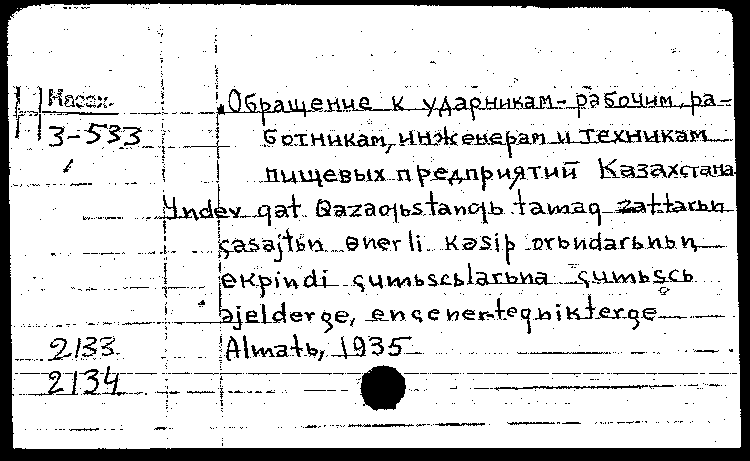 Казах.
3-533
Обращение к ударникам-рабочим, ра-
ботникам, инженерам и техникам
пищевых предприятий Казахстана
Yndev qat Qazaqьstanqь tamaq zattarьn
çasajtьn өnerli kəsip orьndarьnьꞑ
ekpindi çumьscьlarьna çumьscь
əjelderge, ençener-teqnikterge
2133 Almatь, 1935
2134